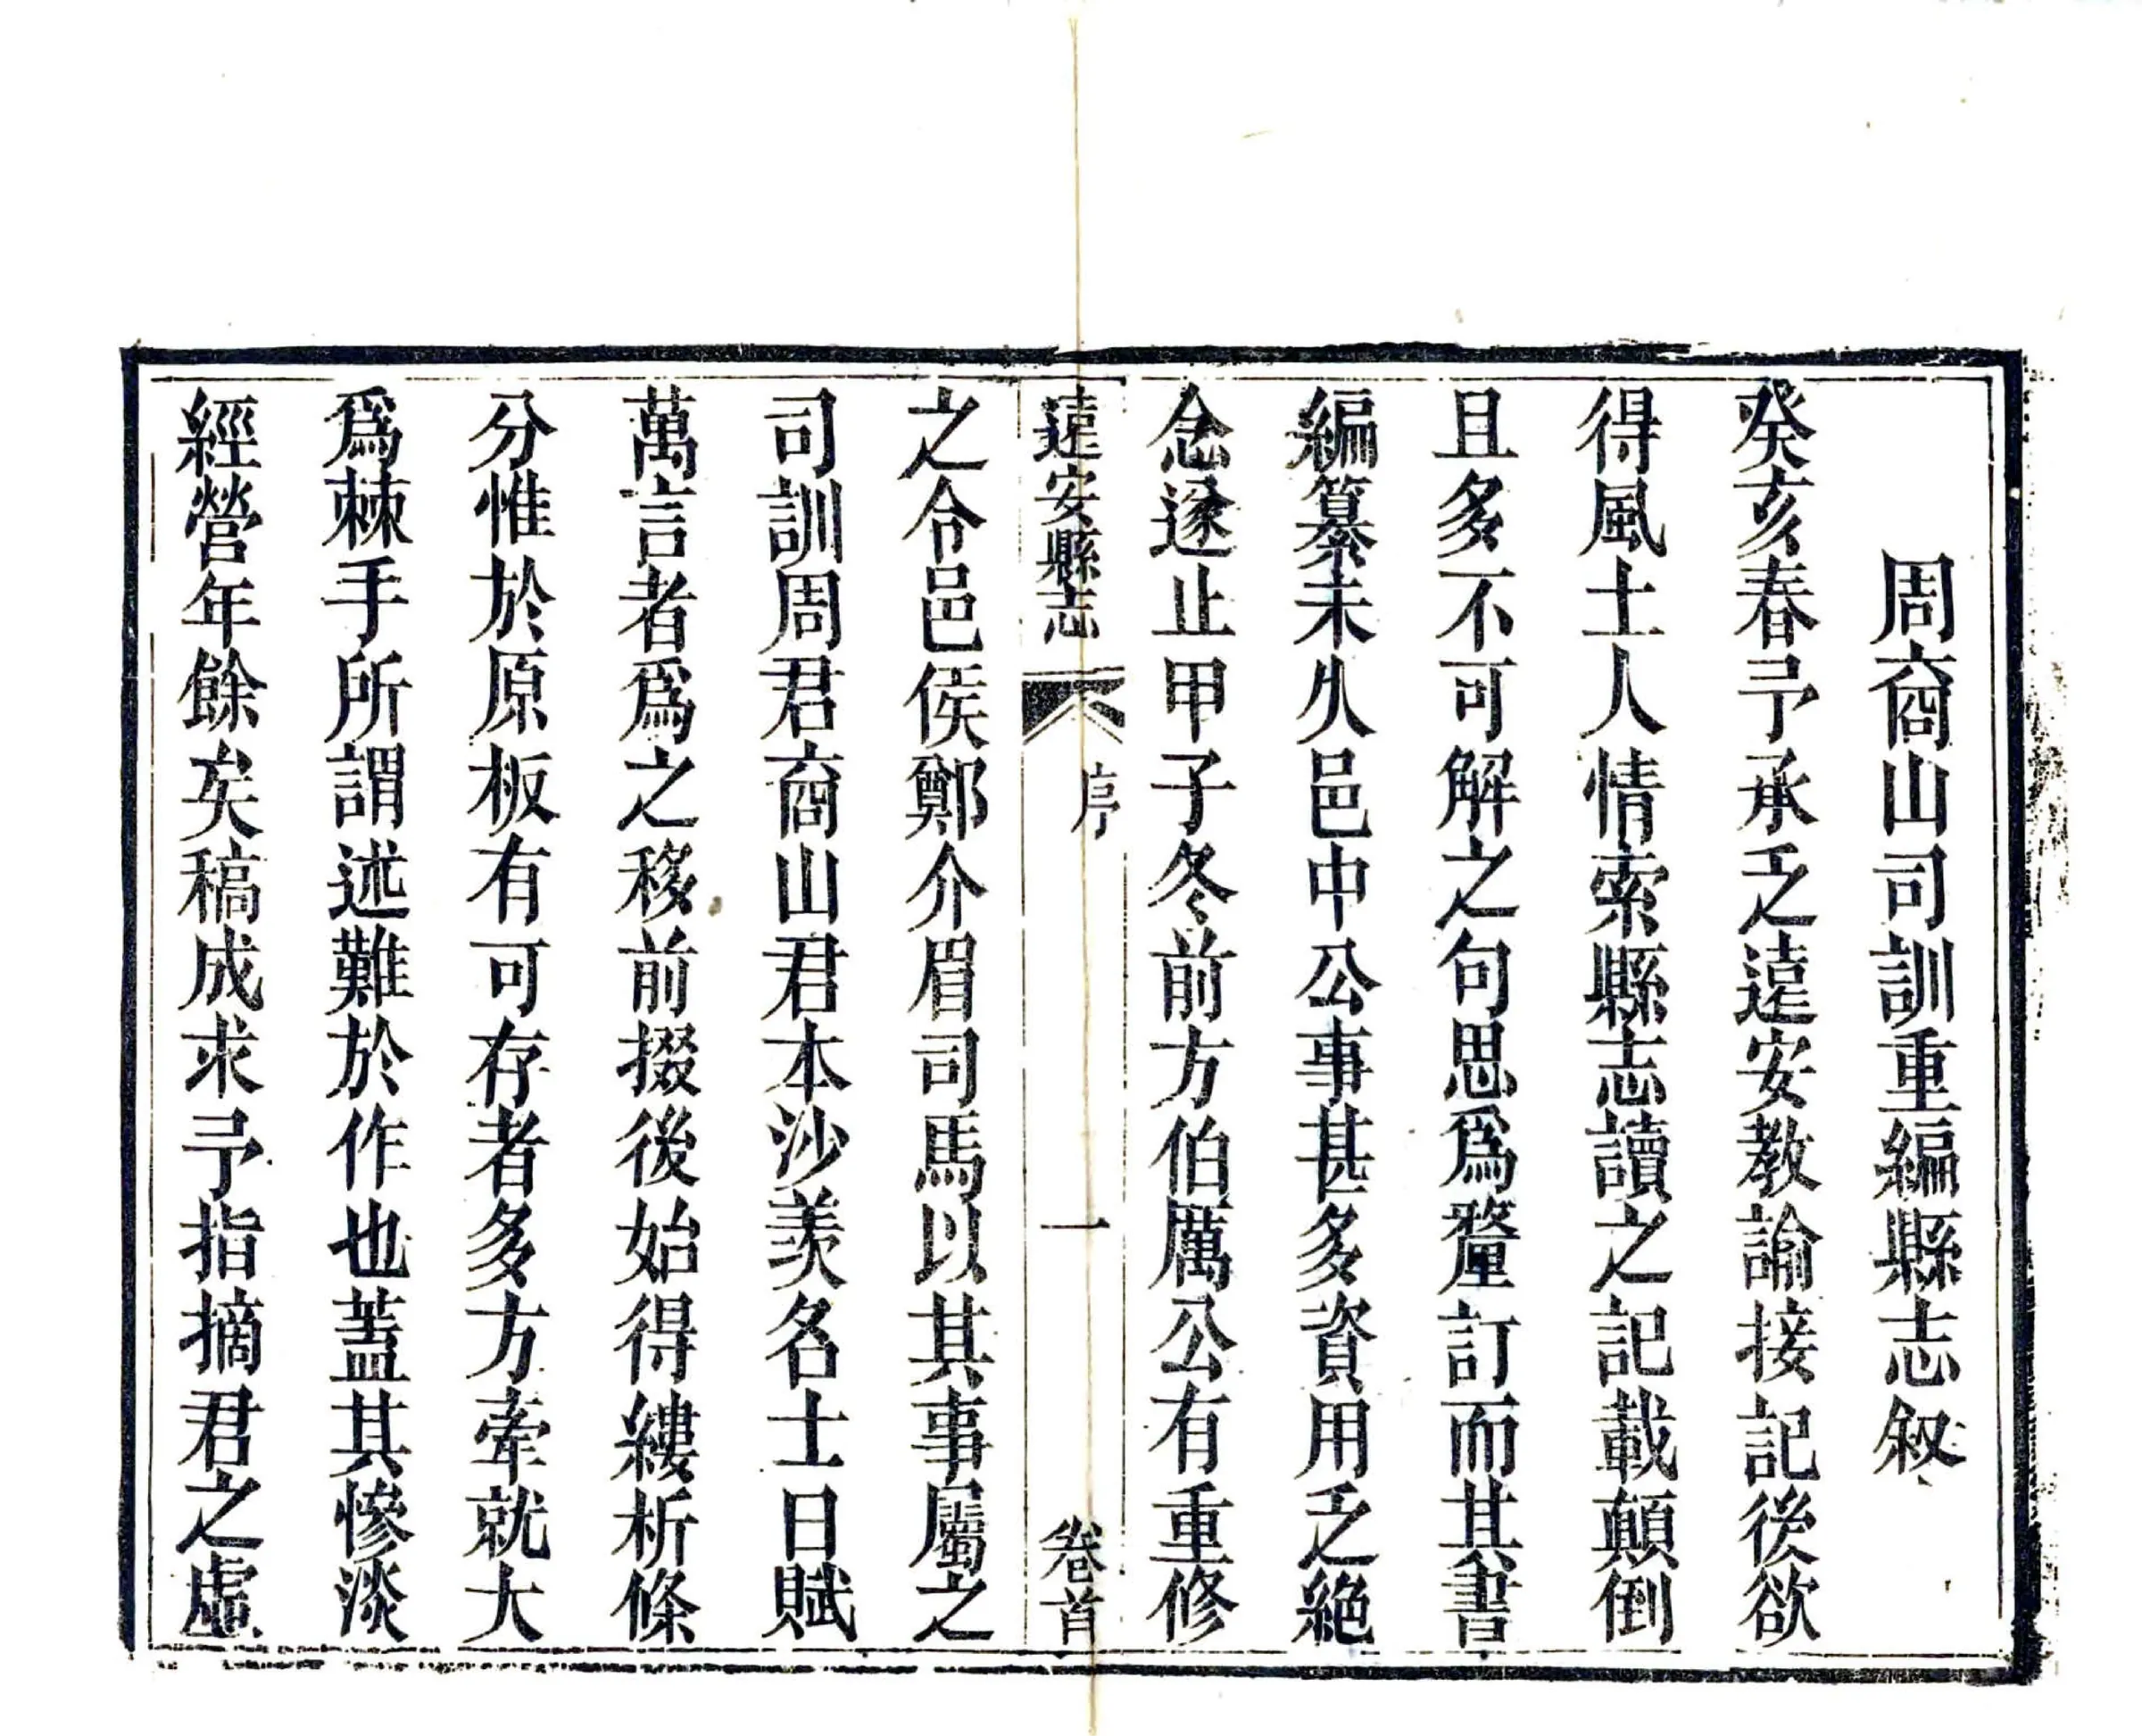 周裔山司訓重編縣志敘
癸亥春予承乏遠安教諭接記後欲
得風土人情索縣志讀之記載顛倒
且多不可解之句思爲釐訂而其書
編纂未久邑中公事甚多資用乏絕
念遂止甲子冬前方伯厲公有重修
遠安縣志 序 一 卷首
之令邑侯鄭介眉司馬以其事屬之
司訓周君裔山君本沙羨名士日賦
萬言者爲之移前掇後始得縷析條
分惟於原板有可存者多方牽就大
爲棘手所謂述難於作也蓋其慘淡
經營年餘矣稿成求予指摘君之虛